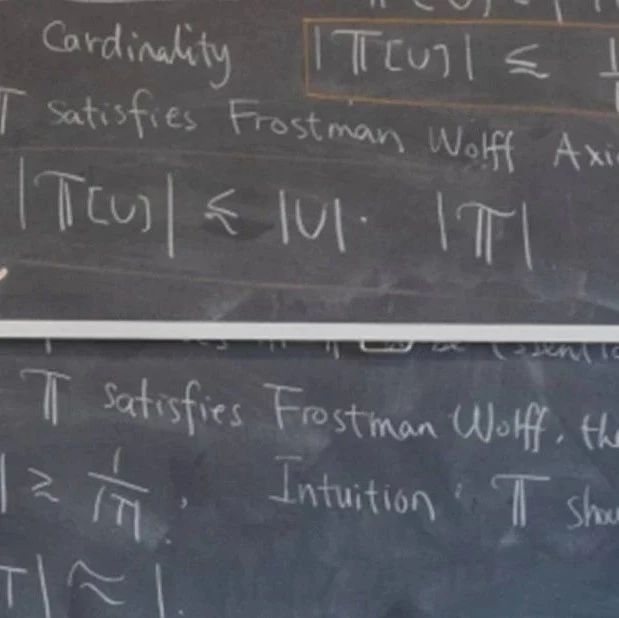 Cardinality |𝕋[U]| ≲
𝕋 satisfies Frostman Wolff Axi
|𝕋[U]| ≲ |U| · |𝕋|
𝕋 satisfies Frostman Wolff, the
| ≳ 1/|T|, Intuition: 𝕋 shou
T| ≈ 1.